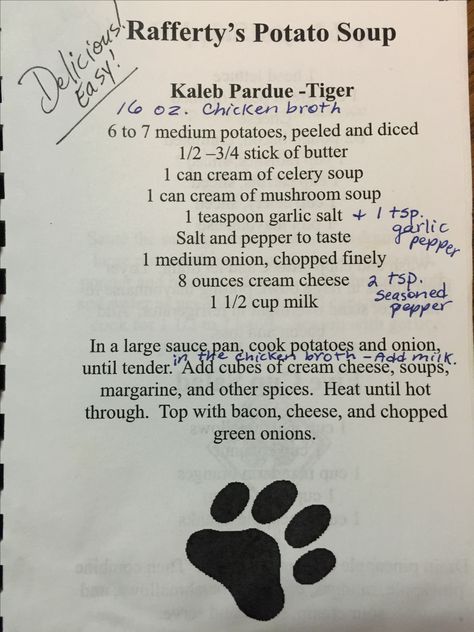 Delicious!
Easy!
Rafferty's Potato Soup
Kaleb Pardue -Tiger
16 oz. Chicken broth
6 to 7 medium potatoes, peeled and diced
1/2 –3/4 stick of butter
1 can cream of celery soup
1 can cream of mushroom soup
1 teaspoon garlic salt + 1 tsp. garlic pepper
Salt and pepper to taste
1 medium onion, chopped finely
8 ounces cream cheese 2 tsp. Seasoned pepper
1 1/2 cup milk
In a large sauce pan, cook potatoes and onion,
in the chicken broth - Add milk.
until tender. Add cubes of cream cheese, soups,
margarine, and other spices. Heat until hot
through. Top with bacon, cheese, and chopped
green onions.